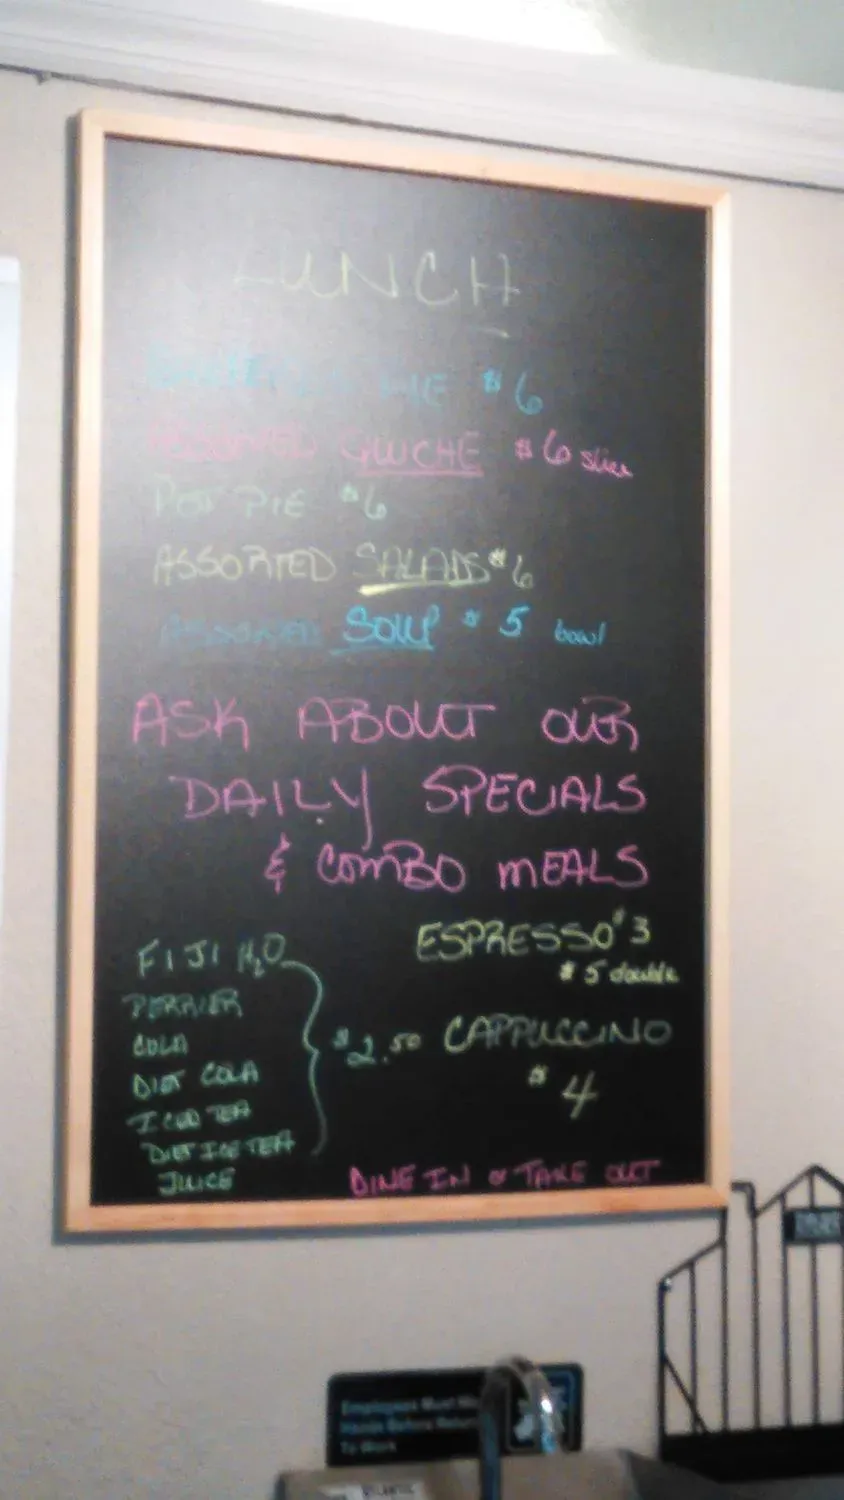 LUNCH
PIE $6
ASSORTED QUICHE $6 slice
POT PIE $6
ASSORTED SALADS $6
ASSORTED SOUP $5 bowl
ASK ABOUT OUR
DAILY SPECIALS
& COMBO MEALS
FIJI H2O
PERRIER
COLA
DIET COLA
ICED TEA
DIET ICE TEA
JUICE
$2.50
ESPRESSO $3
$5 double
CAPPUCCINO
$4
DINE IN or TAKE OUT
Employees Must
Hands Before
To Work